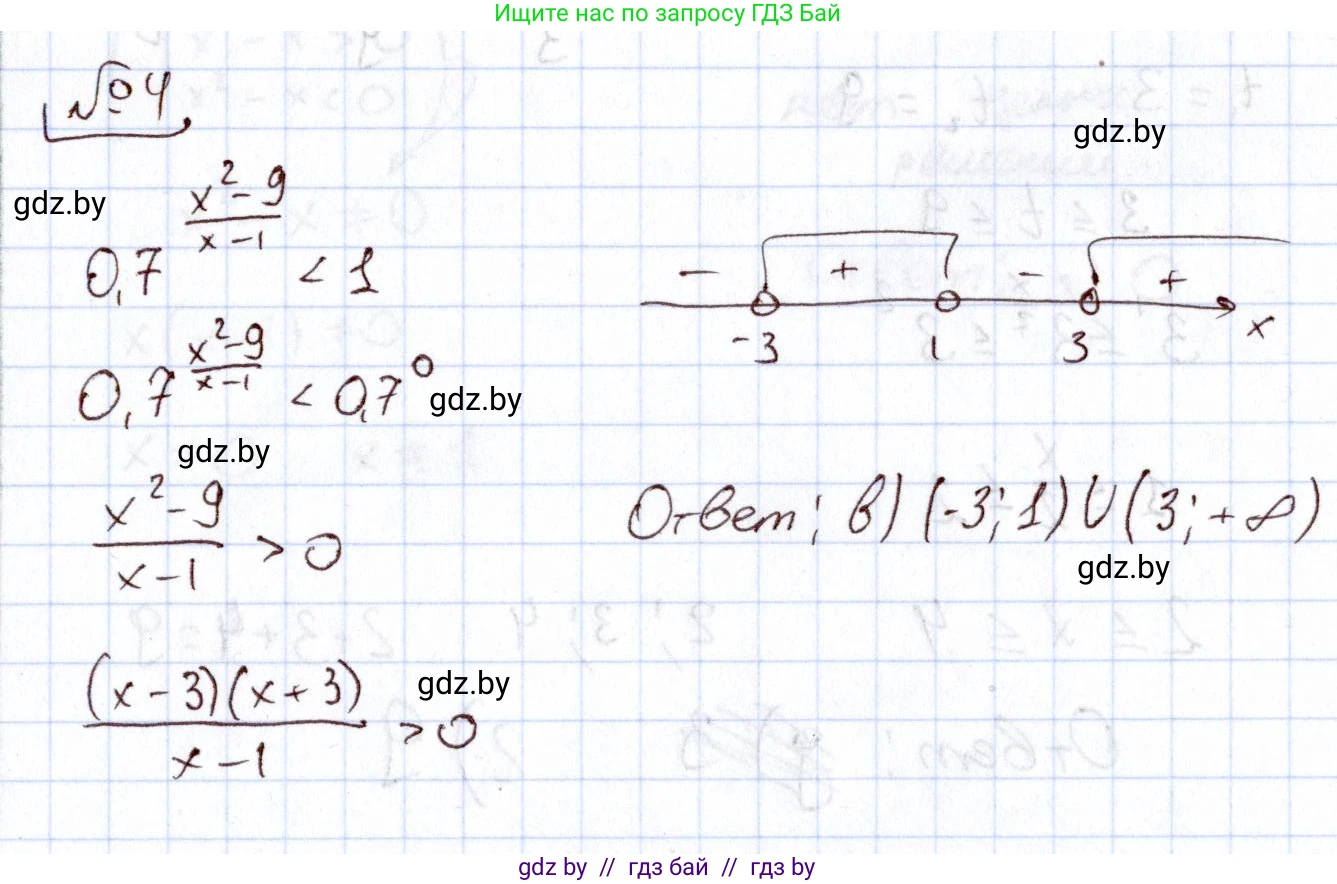 Ищите нас по запросу ГДЗ Бай
№ 4
gdz.by
gdz.by
0,7^((x²-9)/(x-1)) < 1
0,7^((x²-9)/(x-1)) < 0,7⁰
gdz.by
gdz.by
(x²-9)/(x-1) > 0
((x-3)(x+3))/(x-1) > 0
gdz.by
- + - +
-3 1 3 x
Ответ: в) (-3; 1) ∪ (3; +∞)
gdz.by
gdz by // гдз бай // гдз by